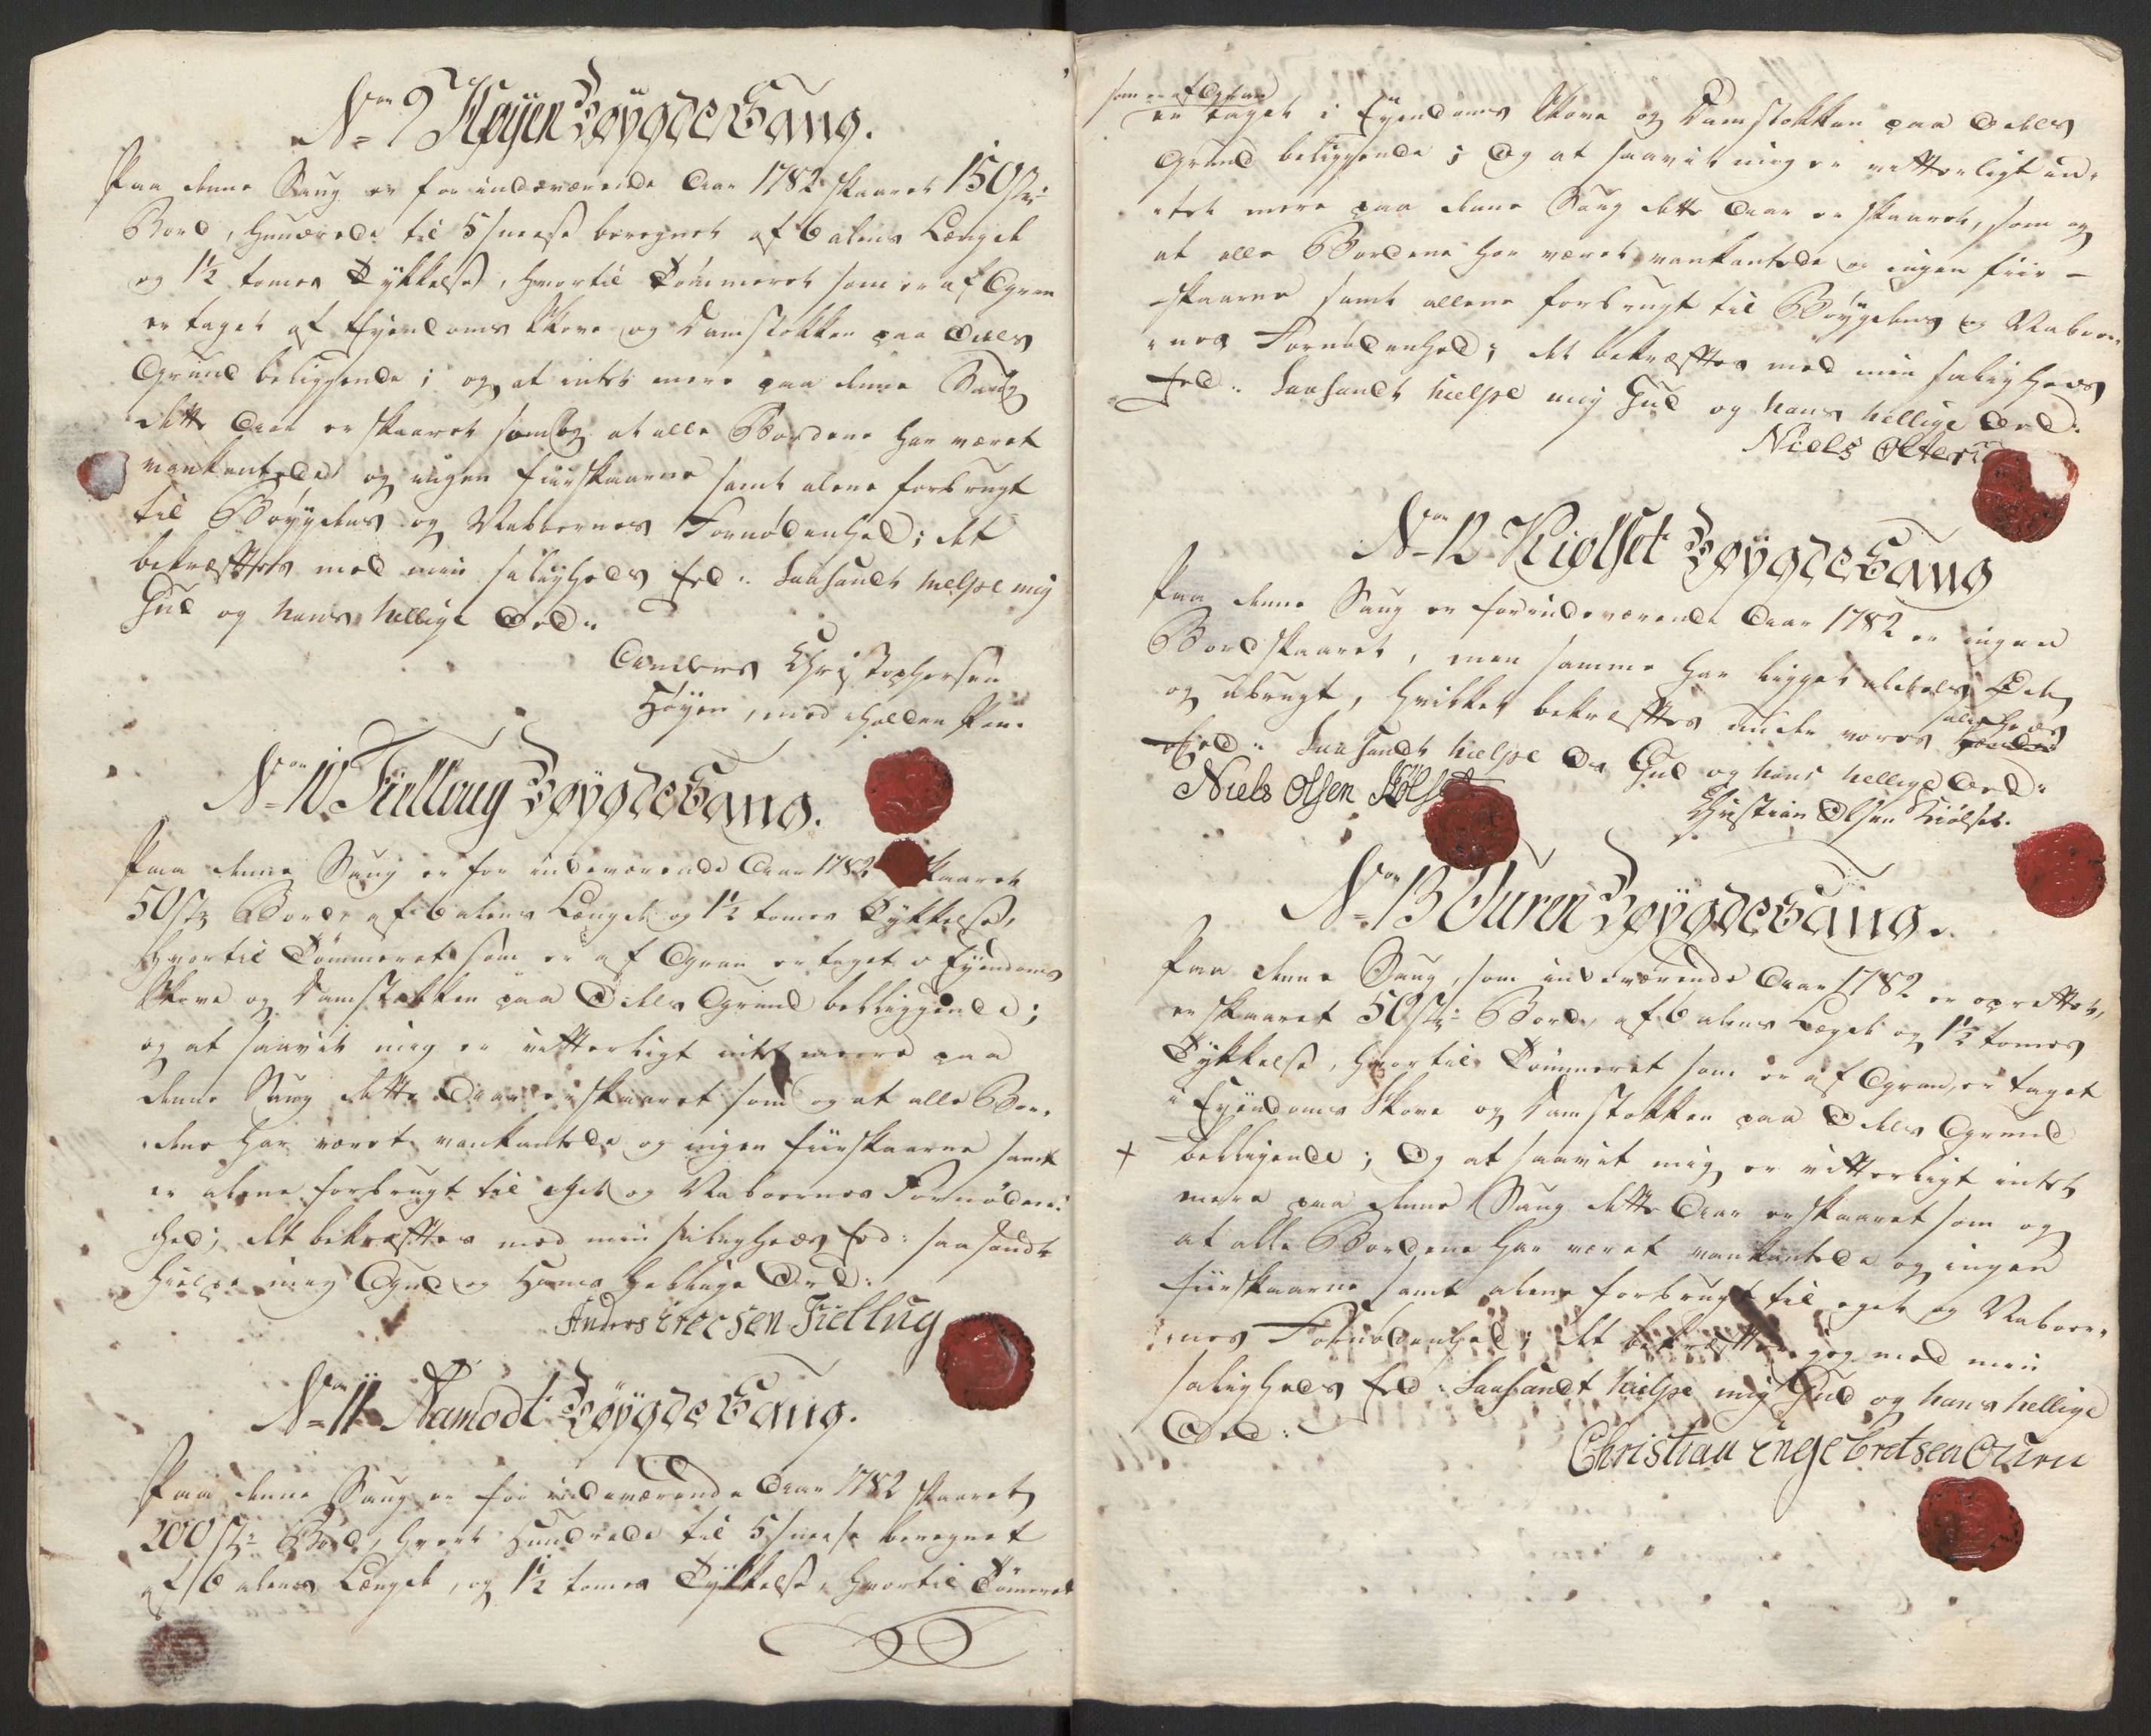 No 9 Høyen Bøygde Saug.
Paa denne Saug er for indeværende Aar 1782 skaaret 150 stk
Bord, Hunderede til 5 sneese beregnet af 6 alens Længde
og 1½ tomes Tykkelse, hvortil Tømmeret som er af Gran
er taget af Eyendoms Skove og Damstokken paa Odels
Grund beliggende; og at intet mere paa denne Saug
dette Aar er skaaret som og at alle Bordene har været
vankantede og ingen fiirskaarne samt alene forbrugt
til Bøygdens og Naboernes Fornødenhed; det
bekræftes med min saligheds Eed :/: Saasandt hielpe mig
Gud og hans hellige Ord :/:
Anders Christophersen
Høyen, med iholden Pen.
No 10 Fiellaug Bøygde Saug.
Paa denne Saug er for indeværende Aar 1782 skaaret
50 stk Bord, af 6 alens Længde og 1½ tomes Tykkelse,
hvortil Tømmeret som er af Gran er taget i Eyendoms
Skove og Damstokken paa Odels Grund beliggende;
og at saavit mig er vitterligt intet meere paa
denne Saug dette Aar er skaaret som og at alle Bor-
dene har været vankantede og ingen fiirskaarne samt
er alene forbrugt til Eget og Naboernes Fornøden-
hed; det bekræftes med min saligheds Eed: saa sandt
hielpe mig Gud og Hans hellige Ord:
Anders Erecsen Fiellug
No 11 Aamodt Bøygde Saug.
Paa denne Saug er for indeværende Aar 1782 skaaret
200 stk Bord, hvert Hundrede til 5 sneese beregnet
af 6 alens Længde, og 1½ tomes Tykkelse, hvortil Tømeret
som er af Gran
er taget i Eyendoms Skove og Damstokken paa Odels
Grund beliggende; Og at saavit mig er vitterligt in-
tet mere paa denne Saug dette Aar er skaaret, som og
at alle Bordene har været vankantede og ingen fiir-
skaarne samt allene forbrugt til Bøygdens og Naboer-
nes Fornødenhed; det bekræftes med min saligheds
Eed :/: Saasandt hielpe mig Gud og hans hellige Ord:
Niels
No 12 Kiølset Bøygde Saug
Paa denne Saug er for indeværende Aar 1782 er ingen
Bord skaaret, men samme har ligget aldeles Øde
og ubrugt, hvilket bekræftes under vores
saligheds
Eed :/: Saasandt hielpe Os Gud og hans hellige Ord :/:
Niels Olsen
Christian Olsen Kiølset.
No 13 Ouren Bøygde Saug.
Paa denne Saug, som indeværende Aar 1782 er oprettet,
er skaaret 50 stk: Bord, af 6 alens Længde og 1½ tomes
Tykkelse, hvortil Tømmeret som er af Gran, er taget
i Eyendoms Skove og Damstokken paa Odels Grund
+ beliggende; Og at saavit mig er vitterligt intet
mere paa denne Saug dette Aar er skaaret som og
at alle Bordene har været vankantede og ingen
fiirskaarne samt alene forbrugt til eget og Naboer-
nes Fornødenhed; det bekræfter jeg med min
saligheds Eed: Saasandt hielpe mig Gud og hans hellige
Ord:
Christian Engebretsen Ouren